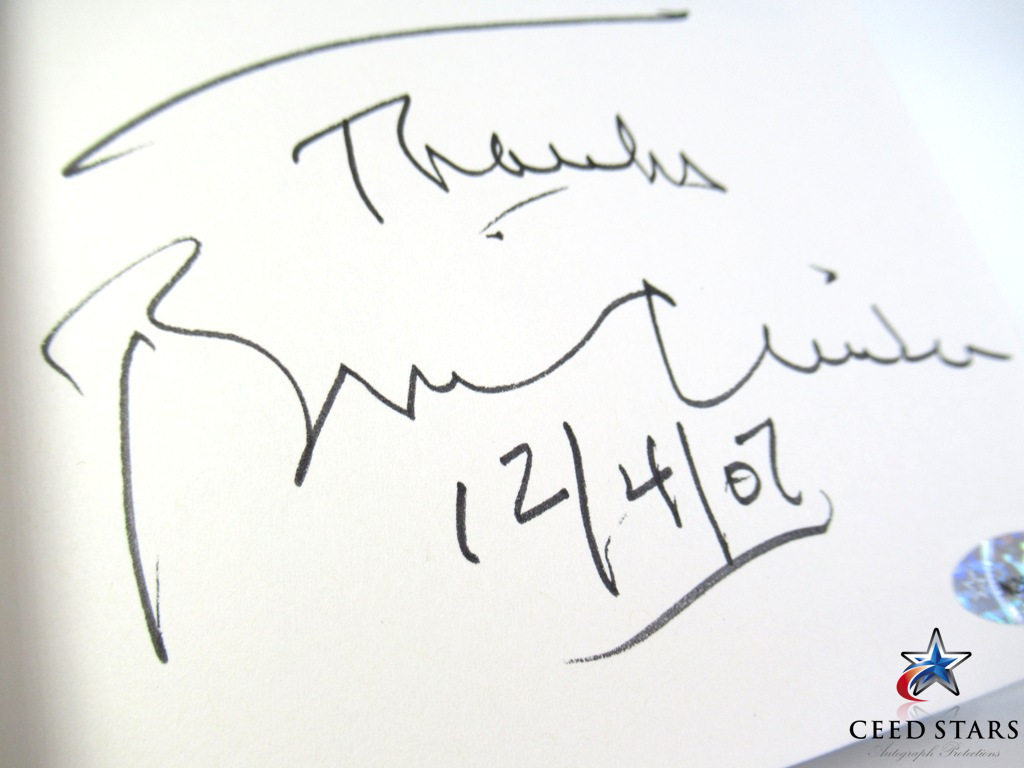 Thanks
12/4/07
CEED STARS
Autograph Protections